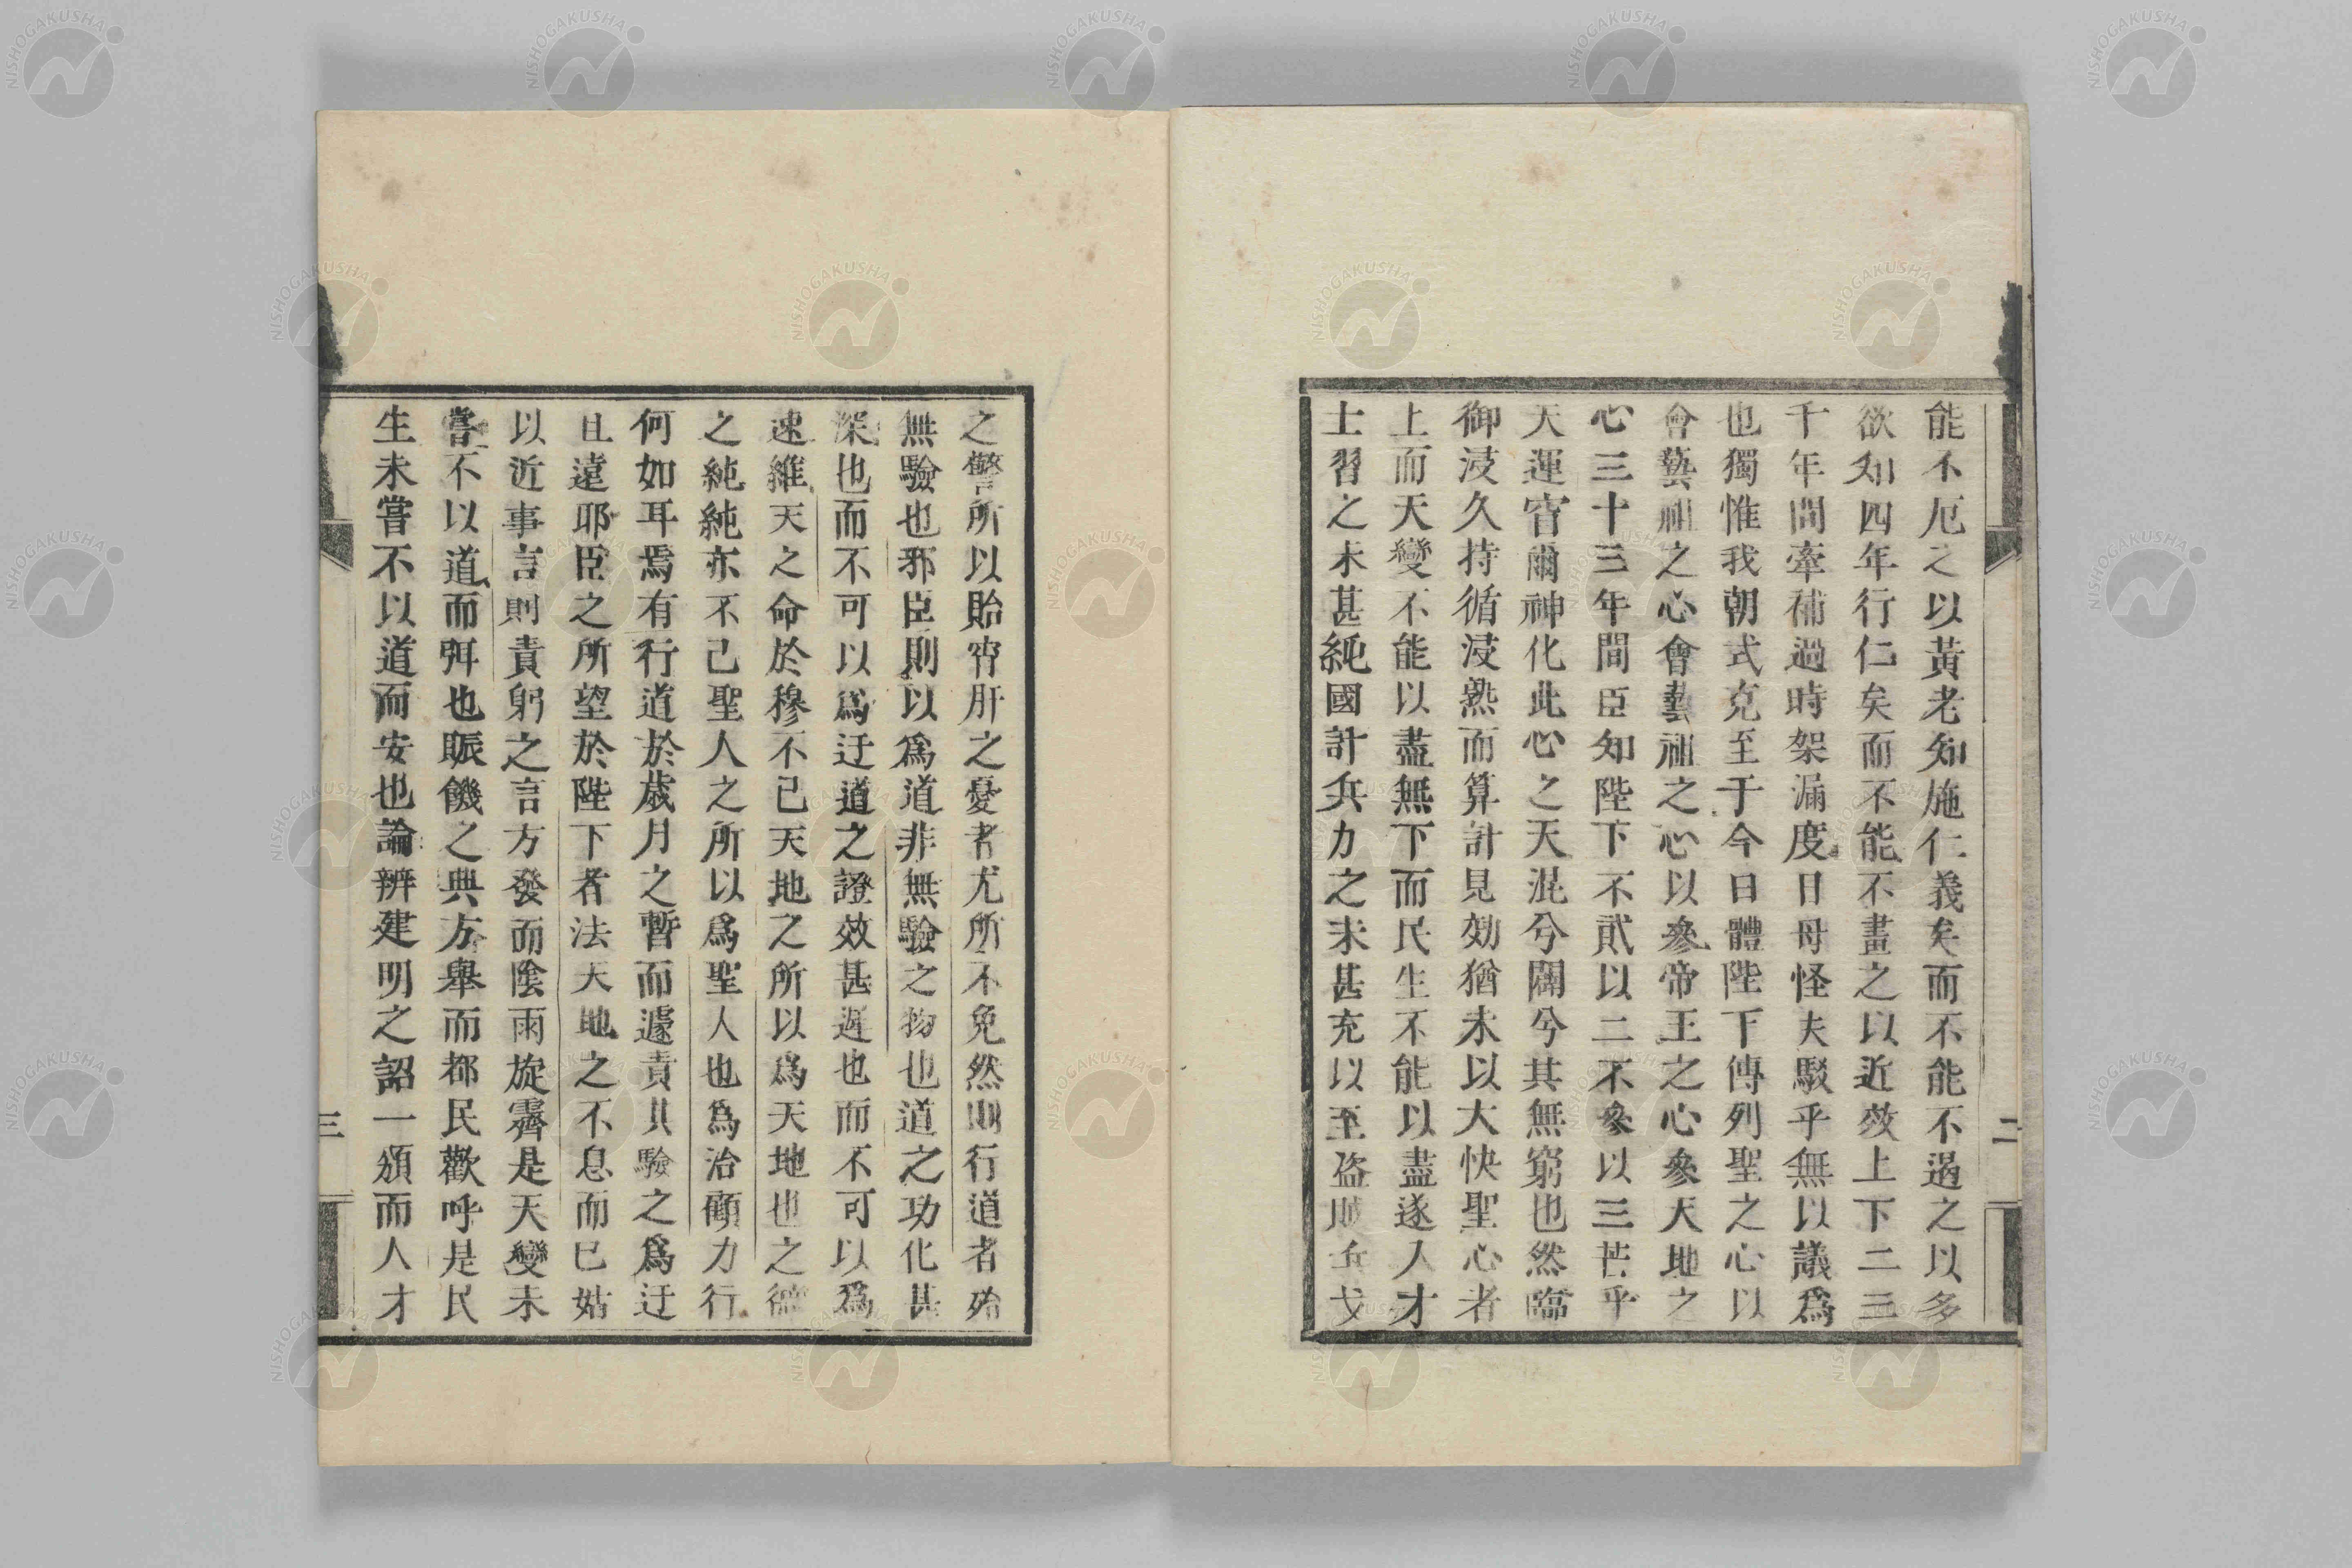 能不厄之以黃老知施仁義矣而不能不遏之以多
欲知四年行仁矣而不能不畫之以近效上下二三
千年間牽補過時架漏度日毋怪夫駁乎無以議爲
也獨惟我朝式克至于今日體陛下傳列聖之心以
會藝祖之心會藝祖之心以參帝王之心參天地之
心三十三年間臣知陛下不貳以二不參以三茫乎
天運窅爾神化此心之天混兮闢兮其無窮也然臨
御浸久持循浸熟而算計見効猶未以大快聖心者
上而天變不能以盡無下而民生不能以盡遂人才
士習之未甚純國計兵力之未甚充以至盜賊兵戈
二
之警所以貽宵旰之憂者尤所不免然則行道者殆
無驗也邪臣則以爲道非無驗之物也道之功化甚
深也而不可以爲迂道之證效甚遲也而不可以爲
速維天之命於穆不已天地之所以爲天地也之德
之純純亦不已聖人之所以爲聖人也爲治顧力行
何如耳焉有行道於歲月之暫而遽責其驗之爲迂
且遠耶臣之所望於陛下者法天地之不息而已姑
以近事言則責躬之言方發而陰雨旋霽是天變未
嘗不以道而弭也賑饑之典方舉而都民歡呼是民
生未嘗不以道而安也論辨建明之詔一頒而人才
三
NISHOGAKUSHA